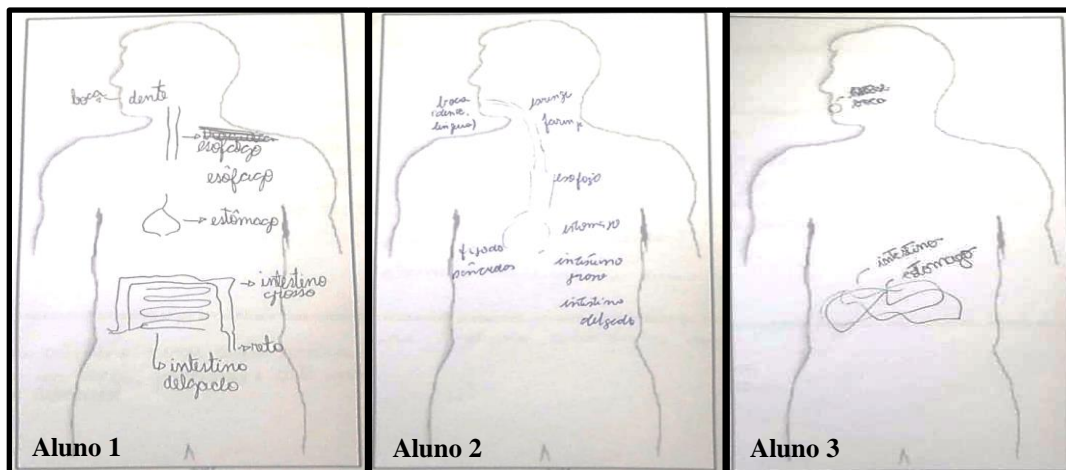 boca
dente
esofago
esôfago
estômago
intestino
grosso
reto
intestino
delgado
Aluno 1
boca
(dente,
língua)
laringe
faringe
esofojo
estomago
fígado
pâncreas
intestino
groso
intestino
delgado
Aluno 2
boca
intestino
estomago
Aluno 3